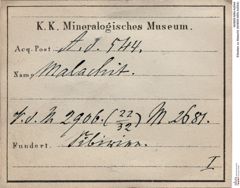 K. K. Mineralogisches Museum.
Acq. Post A. d. 544.
Name Malachit.
F. d. N 2906. (22/32) M 2681.
Fundort. Sibirien.
I